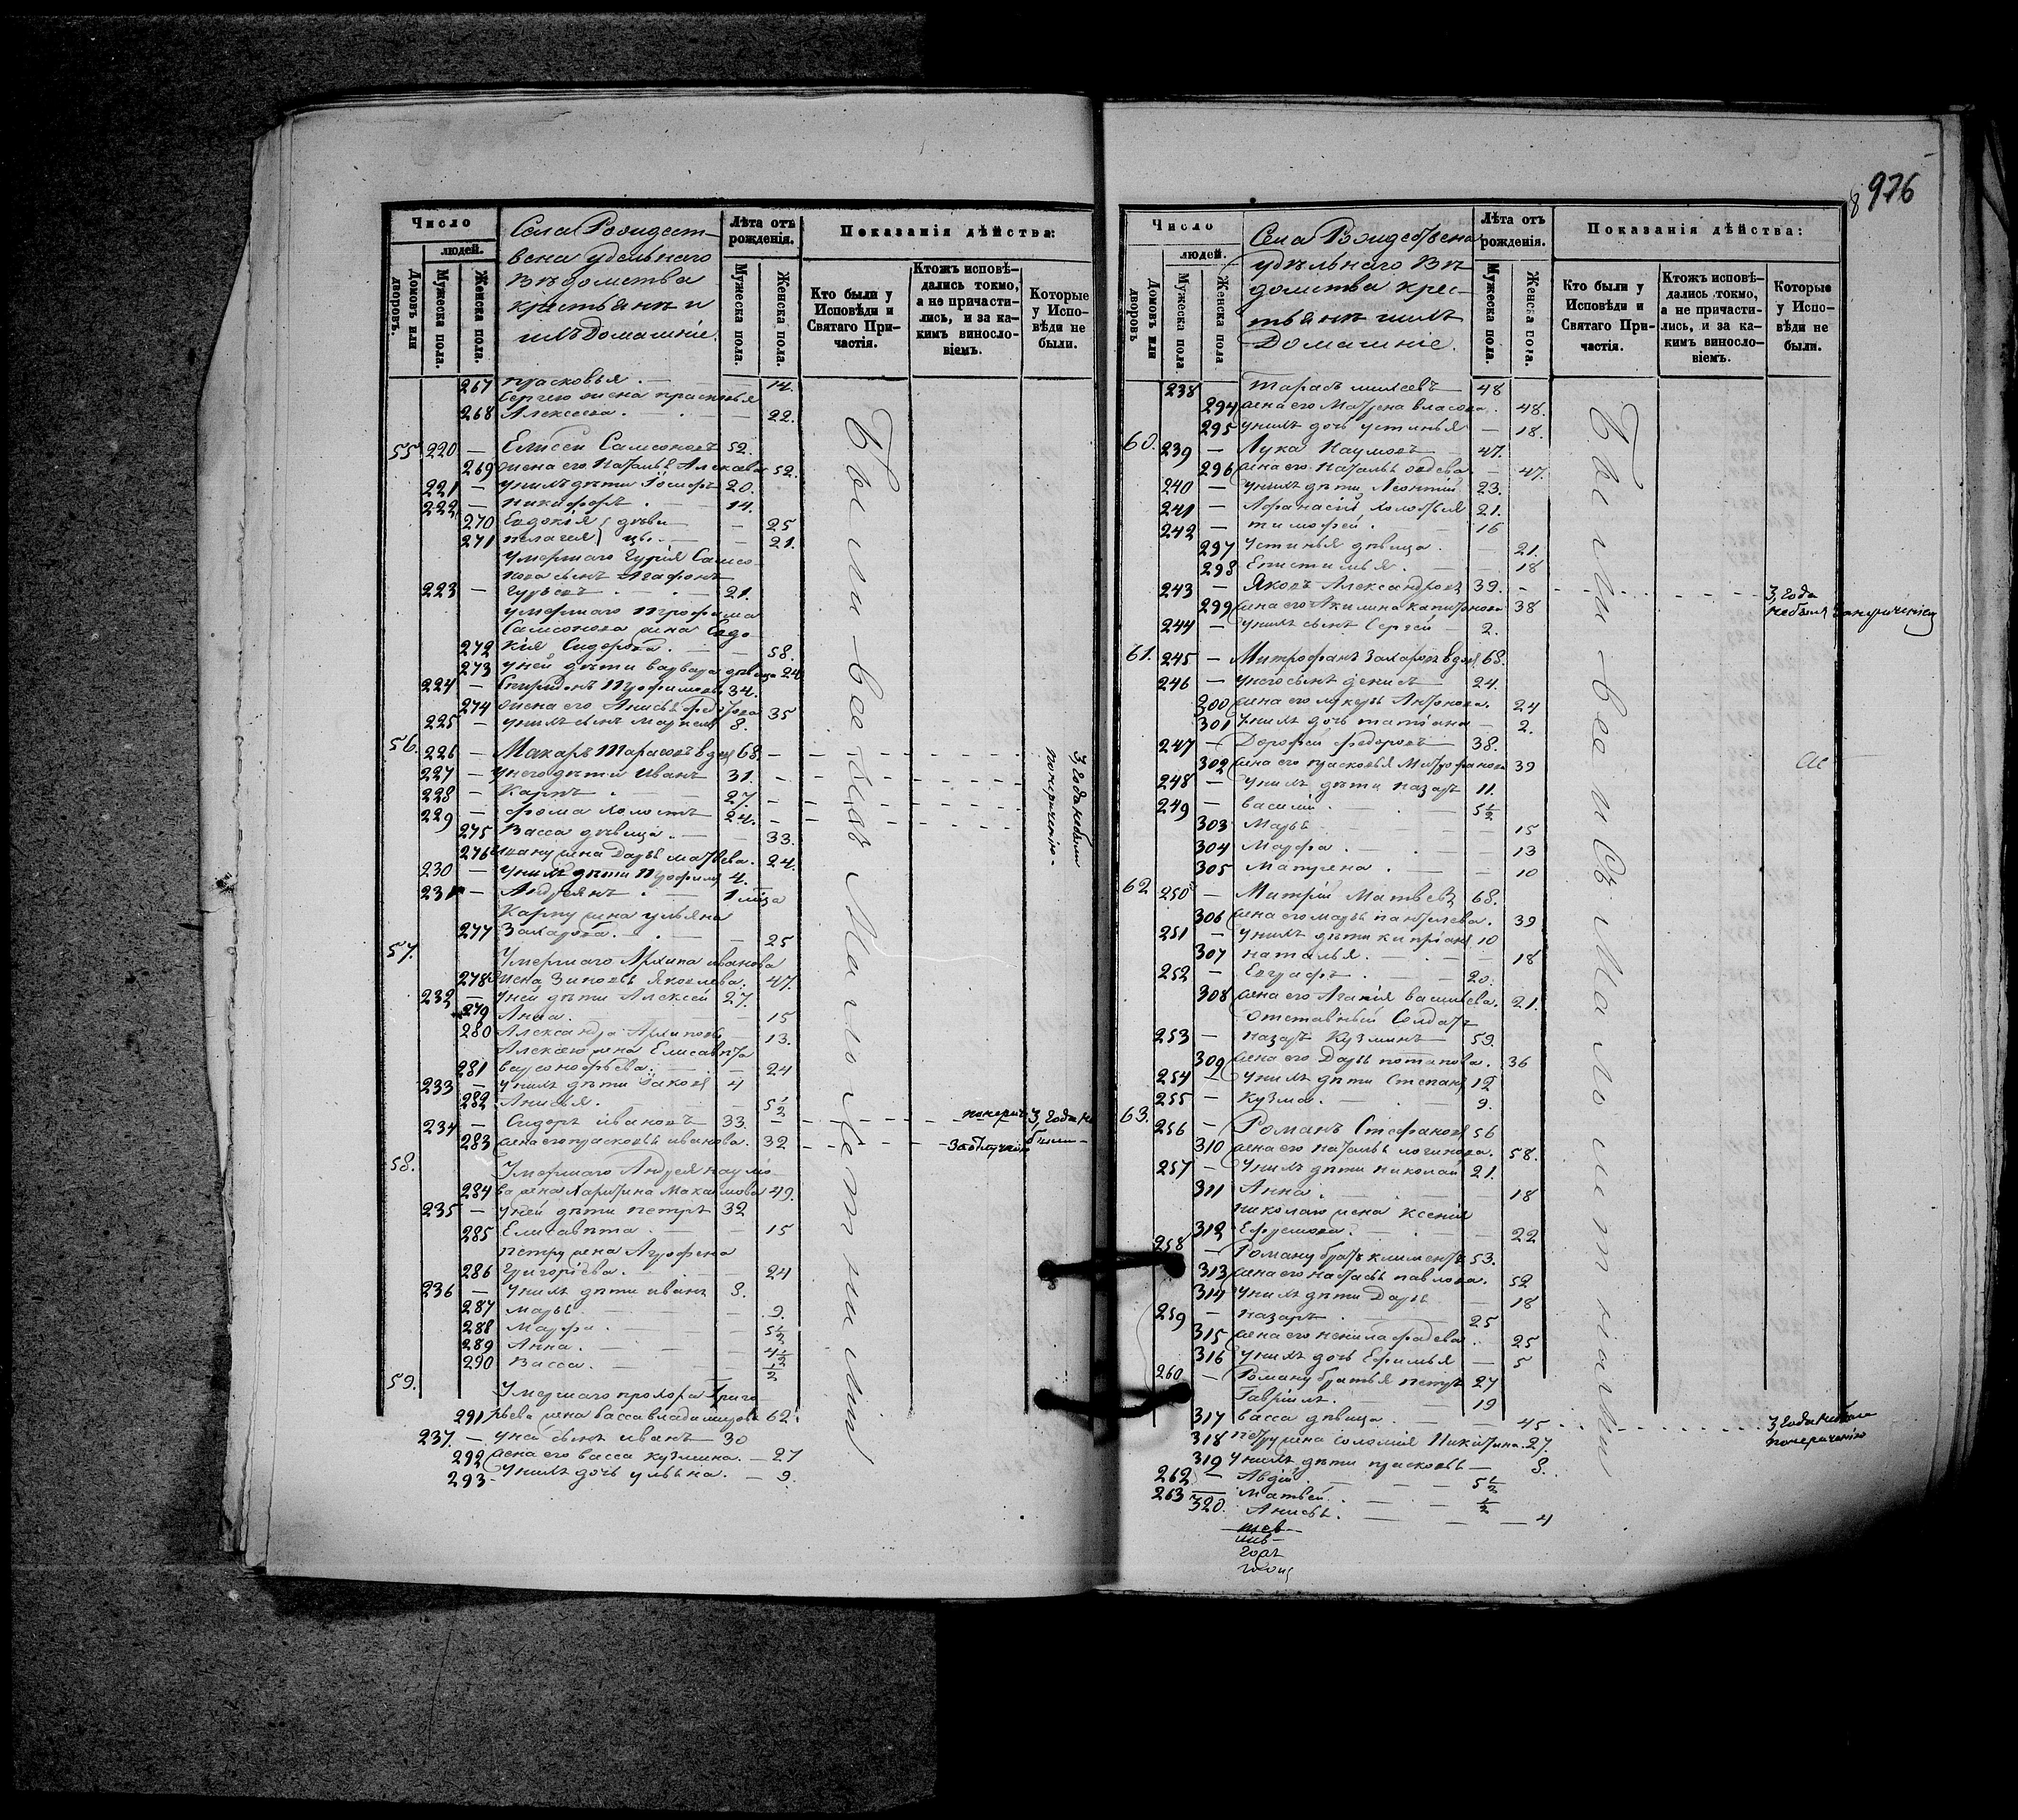 Число
людей.
Домовъ или дворовъ.
Мужеска пола.
Женска пола.
Села Рождест-
вена удельнаго
Вѣдомства
крестьянѣ и
ихъ Домашніе.
Лѣта отъ рожденія.
Мужеска пола.
Женска пола.
Показанія дѣйства:
Кто были у Исповѣди и Святаго Причастія.
Ктожъ исповѣдались токмо, а не причастились, и за какимъ винословіемъ.
Которые у Исповѣди не были.
267 прасковья. — 14.
Сергею жена прасковья
268 Алексеева. — 22.
55 220 — Елисей Самсоновъ 52.
269 жена его Наталья Алексева 52.
221 — у нихъ дѣти Іосифъ 20.
222 — Никифоръ 14.
270 Евдокія } дѣви — 25
271 пелагея } цы. — 21.
умершаго Гурія Самсо
нова сынъ Агафонъ
223 — Гурьевъ 21.
умершаго Трофима
Самсонова жена Евдо
272 кія Сидорова. — 58.
273 у ней дѣти варвара дѣвица 24
224 — Спиридонъ Трофимовъ 34.
274 жена его Анисья 35
225 — у нихъ сынъ 8.
56. 226 — Макаръ Тарасовъ вдов 68. —
227 — у него дѣти Иванъ 31. —
228 — Карпъ 27. —
229 — фома холостъ 24. —
275 Васса дѣвица. — 33.
276 ивану жена Дарья матвева. 24.
230 — у нихъ дѣти Трофимъ 4.
231 — Андреянъ 1 мца
Карпу жена ульяна
277 Захарова. — 25
57. Умершаго Архипа иванова
278 жена Зиновья Яковлева. 47.
232 — у ней дѣти Алексей 27.
279 Анна. — 15
280 Александра Архипова 13.
Алексею жена Елисавѣта
281 — 24
233 — у нихъ дѣти Іаковъ 4
282 Анисья. — 5½
234 — Сидоръ ивановъ 33. —
283 жена его прасковья иванова. 32 —
3 года не были
58. Умершаго Андрея наумо
284 ва жена Харитина Максимова 49.
235 — у ней дѣти петръ 32
285 Елисавѣта — 15
петру жена Агрофена
286 Григоріева. — 24
236 — у нихъ дѣти иванъ 8.
287 марья — 9.
288 Марфа. — 5½
289 Анна. — 4½
290 Васса. — ½
59. Умершаго прохора Григо
291 рьева жена васса владимирова 62.
237. — у ней сынъ иванъ — 30
292 жена его васса Кузмина. — 27
293 — у нихъ дочь ульяна. — 9.
Были все и сѣ Малолетними
3 года не были
по нерачению.
976
Число
людей.
Домовъ или дворовъ
Мужеска пола.
Женска пола
Села Рождествена
удѣльнаго Вѣ
домства крес-
тьянѣ и ихъ
Домашніе.
Лѣта отъ рожденія.
Мужеска пола.
Женска пола.
Показанія дѣйства:
Кто были у Исповѣди и Святаго Причастія.
Ктожъ исповѣдались токмо, а не причастились, и за какимъ винословіемъ.
Которые у Исповѣди не были.
238 Тарасъ 48
294 жена его Матрена власова. 48.
295 у нихъ дочь устинья — 18.
60. 239 — Лука Наумовъ 47.
296 жена его Наталья — 47.
240 — у нихъ дѣти Леонтій 23.
241 — Афанасій холостъя 21.
242 — тимофей. 16
297 Устинья дѣвица. — 21.
298 Епистимья. — 18
243 — Яковъ Александровъ 39. —
3 года
не былъ за нерачениемъ
299 жена его Акилина капитонова 38
244 — у нихъ сынъ Сергей — 2.
61. 245 — Митрофанъ Захаровъ вдов 68.
246 — у него сынъ денисъ 24.
300 жена его лукерья Антонова. 24
301 у нихъ дочь татіана — 2.
247 — Дорофей федоровъ 38.
302 жена его прасковья Митрофанова 39
248 — у нихъ дѣти назаръ 11.
249 — василій. 5½
303 Марья — 15
304 Марфа. — 13
305 Матрена. — 10
62 250 — Митрій Матвеевъ 68.
306 жена его марья пантелева. 39
251 — у нихъ дѣти кипріянъ 10
307 наталья. — 18
252 — Евграфъ. 20.
308 жена его Агапія васильева. 21.
отставный Солдатъ
253 — назаръ Кузминъ 59.
309 жена его Дарья потапова. 36
254 — у нихъ дѣти Степанъ 12
255 — Кузма. 9.
63. 256 — Романъ Стефановъ 56
310 жена его наталья логинова. 58.
257 — у нихъ дѣти николай 21.
311 Анна. — 18
николаю жена Ксенія
312 Ефремова. — 22
258 — Роману братъ климентъ 53.
313 жена его настасья павлова. 52
314 у нихъ дѣти Дарья — 18
259 — назаръ. 25
315 жена его ненила 25
316 у нихъ дочь Ефимья — 5
260 — Роману братья петръ 27
Гавріилъ. 19
317 васса дѣвица. — 45
3 года не была
по нерачению
318 петру жена соломія Никитина. 27.
319 у нихъ дѣти прасковья — 8.
262 — Авдій. 5½
263 — Матвей. ½
320. Анисья. — 4
Были все и Сѣ Малолетніами